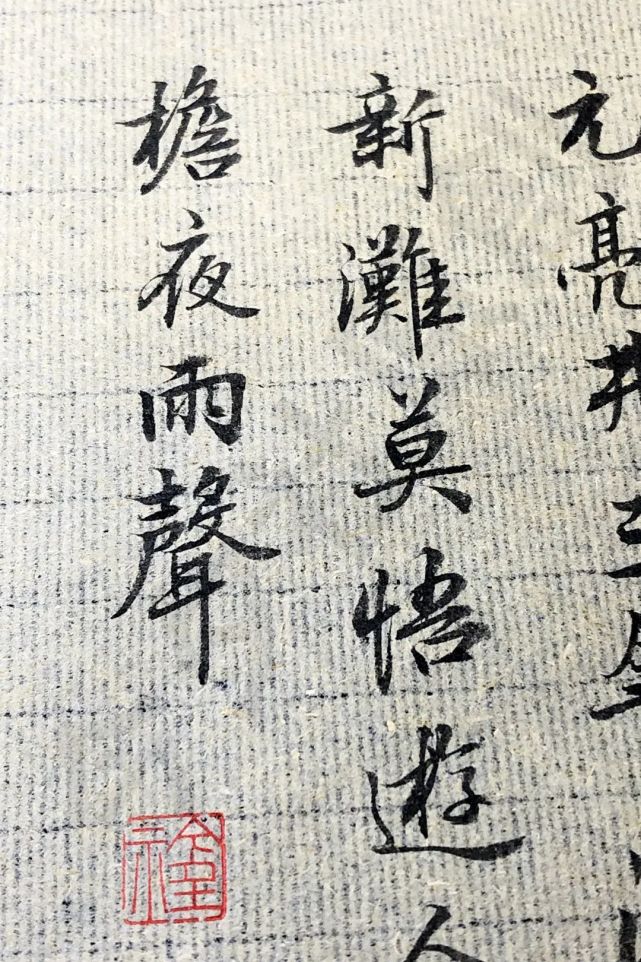 元亮
新灘莫悟遊人
檐夜雨聲